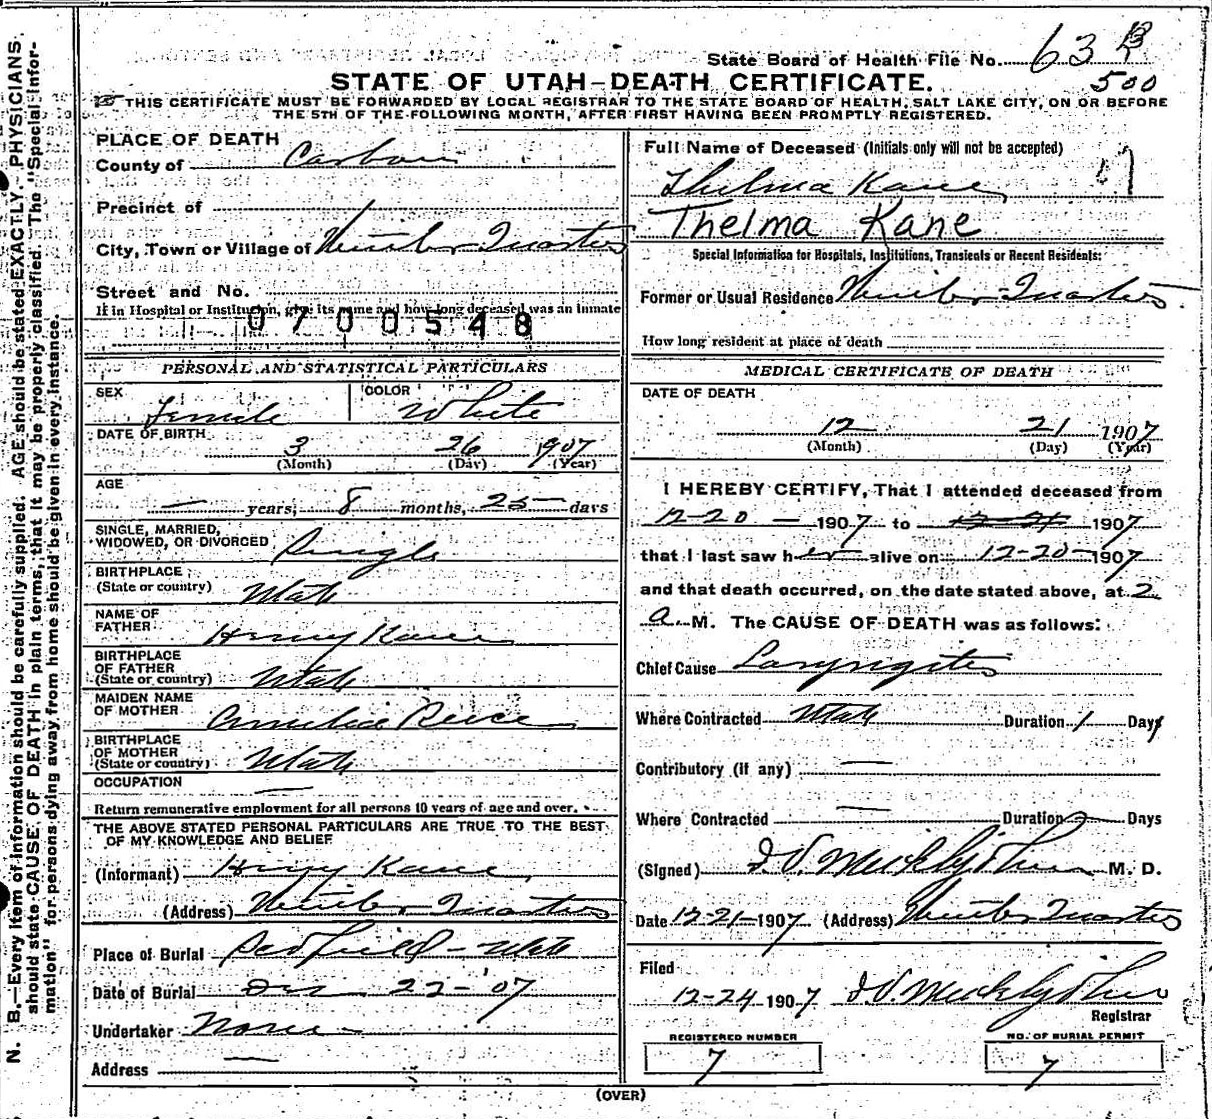 State Board of Health File No. 63 B
500
STATE OF UTAH—DEATH CERTIFICATE.
THIS CERTIFICATE MUST BE FORWARDED BY LOCAL REGISTRAR TO THE STATE BOARD OF HEALTH, SALT LAKE CITY, ON OR BEFORE
THE 5TH OF THE FOLLOWING MONTH, AFTER FIRST HAVING BEEN PROMPTLY REGISTERED.
PLACE OF DEATH
County of Carbon
Precinct of
City, Town or Village of Winter Quarters
Street and No.
If in Hospital or Institution, give its name and how long deceased was an inmate
0700548
Full Name of Deceased (Initials only will not be accepted)
Thelma Kane
Thelma Kane
Special Information for Hospitals, Institutions, Transients or Recent Residents:
Former or Usual Residence Winter Quarters
How long resident at place of death
PERSONAL AND STATISTICAL PARTICULARS
SEX Female
COLOR White
DATE OF BIRTH 3 26 1907
(Month) (Day) (Year)
AGE
— years, 8 months, 25 days
SINGLE, MARRIED,
WIDOWED, OR DIVORCED Single
BIRTHPLACE
(State or country) Utah
NAME OF
FATHER Henry Kane
BIRTHPLACE
OF FATHER
(State or country) Utah
MAIDEN NAME
OF MOTHER Reece
BIRTHPLACE
OF MOTHER
(State or country) Utah
OCCUPATION —
Return remunerative employment for all persons 10 years of age and over.
THE ABOVE STATED PERSONAL PARTICULARS ARE TRUE TO THE BEST
OF MY KNOWLEDGE AND BELIEF
(Informant) Henry Kane
(Address) Winter Quarters
Place of Burial Scofield - Utah
Date of Burial Dec 22-'07
Undertaker None
Address —
MEDICAL CERTIFICATE OF DEATH
DATE OF DEATH
12 21 1907
(Month) (Day) (Year)
I HEREBY CERTIFY, That I attended deceased from
12-20 — 1907 to 12-21 1907
that I last saw her alive on 12-20-1907
and that death occurred, on the date stated above, at 2
a. M. The CAUSE OF DEATH was as follows:
Chief Cause Laryngites
Where Contracted Utah Duration 1 Days
Contributory (if any) —
Where Contracted — Duration Days
(Signed) M. D.
Date 12-21-1907 (Address) Winter Quarters
Filed
12-24 1907
Registrar
REGISTERED NUMBER
7
NO. OF BURIAL PERMIT
7
(OVER)
N. B.—Every item of information should be carefully supplied. AGE should be stated EXACTLY. PHYSICIANS
should state CAUSE OF DEATH in plain terms, that it may be properly classified. The "Special Infor-
mation" for persons dying away from home should be given in every instance.